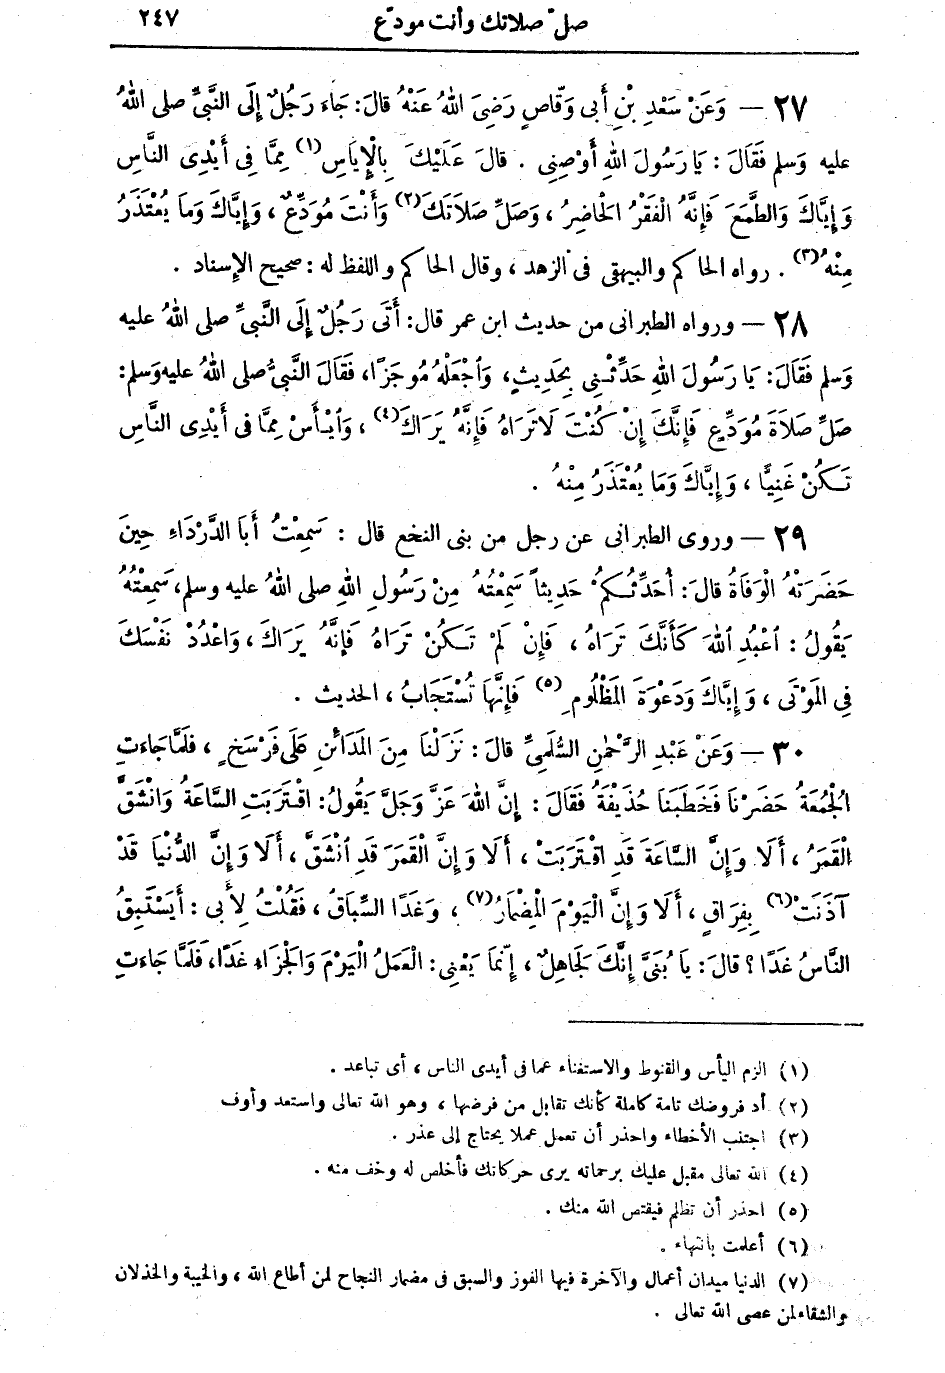 صلّ صلاتك وأنت مودّع ٢٤٧
٢٧ — وَعَنْ سَعْدِ بْنِ أَبِى وَقَّاصٍ رَضِىَ اللهُ عَنْهُ قَالَ: جَاءَ رَجُلٌ إِلَى النَّبِىِّ صلى اللهُ
عليه وسلم فَقَالَ: يَارَسُولَ اللهِ أَوْصِنِى. قالَ عَلَيْكَ بِالْإِيَاسِ(١) مِمَّا فِى أَيْدِى النَّاسِ
وَإِيَّاكَ وَالطَّمَعَ فَإِنَّهُ الْفَقْرُ الْحَاضِرُ، وَصَلِّ صَلَاتَكَ(٢) وَأَنْتَ مُوَدِّعٌ، وَإِيَّاكَ وَمَا يُعْتَذَرُ
مِنْهُ(٣). رواه الحاكم والبيهقى فى الزهد، وقال الحاكم واللفظ له: صحيح الإسناد.
٢٨ — ورواه الطبرانى من حديث ابن عمر قال: أَتَى رَجُلٌ إِلَى النَّبِىِّ صلى اللهُ عليه
وسلم فَقَالَ: يَا رَسُولَ اللهِ حَدِّثْنِى بِحَدِيثٍ، وَاجْعَلْهُ مُوجَزًا، فَقَالَ النَّبِىُّ صلى اللهُ عليه وسلم:
صَلِّ صَلَاةَ مُوَدِّعٍ فَإِنَّكَ إِنْ كُنْتَ لَاتَرَاهُ فَإِنَّهُ يَرَاكَ(٤)، وَايْأَسْ مِمَّا فى أَيْدِى النَّاسِ
تَكُنْ غَنِيًّا، وَإِيَّاكَ وَمَا يُعْتَذَرُ مِنْهُ.
٢٩ — وروى الطبرانى عن رجل من بنى النخع قال: سَمِعْتُ أَبَا الدَّرْدَاءِ حِينَ
حَضَرَتْهُ الْوَفَاةُ قالَ: أُحَدِّثُكُمْ حَدِيثًا سَمِعْتُهُ مِنْ رَسُولِ اللهِ صلى اللهُ عليه وسلم، سَمِعْتُهُ
يَقُولُ: اعْبُدِ اللهَ كَأَنَّكَ تَرَاهُ، فَإِنْ لَمْ تَكُنْ تَرَاهُ فَإِنَّهُ يَرَاكَ، وَاعْدُدْ نَفْسَكَ
فِى الْمَوْتَى، وَإِيَّاكَ وَدَعْوَةَ الْمَظْلُومِ(٥) فَإِنَّهَا تُسْتَجَابُ، الحديث.
٣٠ — وَعَنْ عَبْدِ الرَّحْمٰنِ السُّلَمِىِّ قالَ: نَزَلْنَا مِنَ الْمَدَائِنِ عَلَى فَرْسَخٍ، فَلَمَّا جَاءَتِ
الْجُمُعَةُ حَضَرْنَا فَخَطَبَنَا حُذَيْفَةُ فَقَالَ: إِنَّ اللهَ عَزَّ وَجَلَّ يَقُولُ: اقْتَرَبَتِ السَّاعَةُ وَانْشَقَّ
الْقَمَرُ، أَلَا وَإِنَّ السَّاعَةَ قَدِ اقْتَرَبَتْ، أَلَا وَإِنَّ الْقَمَرَ قَدِ انْشَقَّ، أَلَا وَإِنَّ الدُّنْيَا قَدْ
آذَنَتْ(٦) بِفِرَاقٍ، أَلَا وَإِنَّ الْيَوْمَ الْمِضْمَارُ(٧)، وَغَدًا السِّبَاقُ، فَقُلْتُ لِأَبِى: أَيَسْتَبِقُ
النَّاسُ غَدًا؟ قالَ: يَا بُنَىَّ إِنَّكَ لَجَاهِلٌ، إِنَّمَا يَعْنِى: الْعَمَلُ الْيَوْمَ وَالْجَزَاءُ غَدًا، فَلَمَّا جَاءَتِ
(١) الزم اليأس والقنوط والاستغناء عما فى أيدى الناس، أى تباعد.
(٢) أد فروضك تامة كاملة كأنك تقابل من فرضها، وهو الله تعالى واستعد وأوف
(٣) اجتنب الأخطاء واحذر أن تعمل عملا يحتاج إلى عذر.
(٤) الله تعالى مقبل عليك برحماته يرى حركاتك فأخلص له وخف منه.
(٥) احذر أن تظلم فيقتص الله منك.
(٦) أعلمت بانتهاء.
(٧) الدنيا ميدان أعمال والآخرة فيها الفوز والسبق فى مضمار النجاح لمن أطاع الله، والخيبة والخذلان
والشقاء لمن عصى الله تعالى.